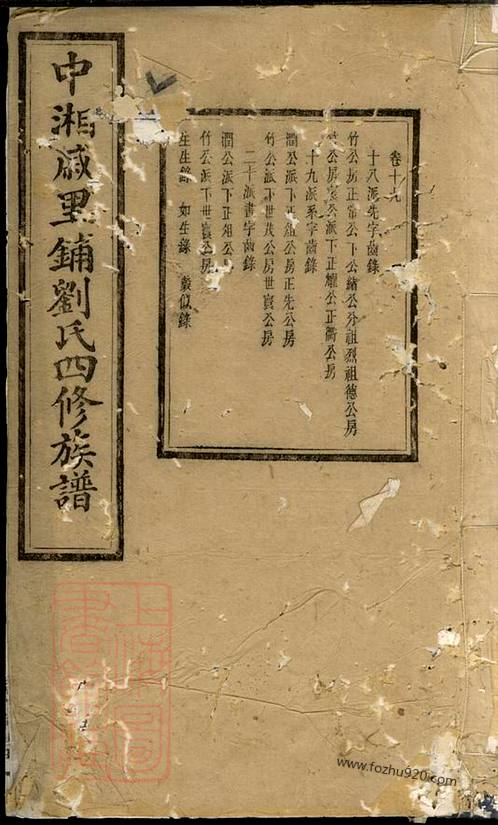 中湘㦴里鋪劉氏四修族譜
卷十九
十八派先字齒錄
竹公房正常公下公緒公分祖烈祖德公房
公房 公派下正燿公正衢公房
十九派系字齒錄
潤公派下正祖公房正先公房
竹公派下世茂公房世賓公房
二十派書字齒錄
潤公派下正祖公房
竹公派下世賓公房
生生錄 如生錄 嚴似錄
www.fozhu920.com